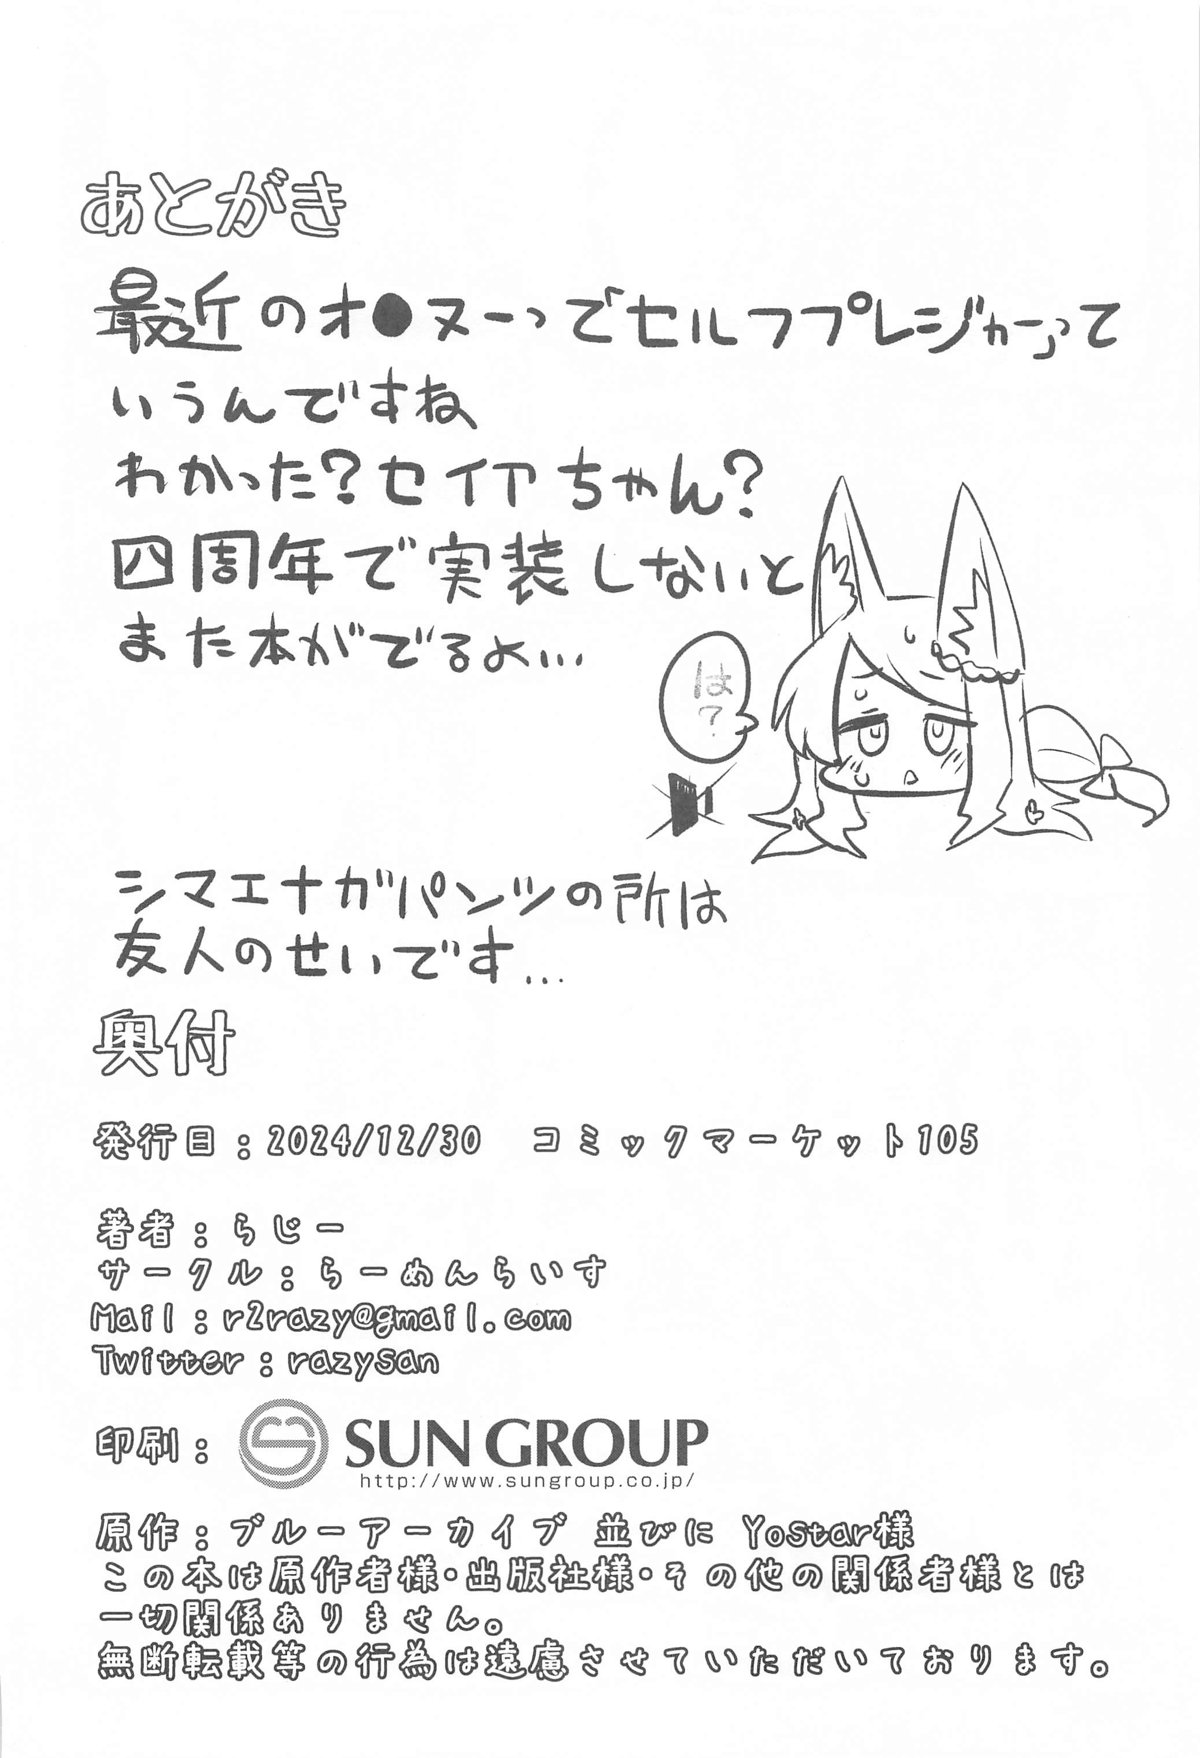 あとがき
最近のオ●ヌーってセルフプレジャーって
いうんですね
わかった？セイアちゃん？
四周年で実装しないと
また本がでるよ…
は？
シマエナガパンツの所は
友人のせいです…
奥付
発行日：2024/12/30　コミックマーケット105
著者：らじー
サークル：らーめんらいす
Mail：r2razy@gmail.com
Twitter：razysan
印刷：SUN GROUP
http://www.sungroup.co.jp/
原作：ブルーアーカイブ 並びに Yostar様
この本は原作者様・出版社様・その他の関係者様とは
一切関係ありません。
無断転載等の行為は遠慮させていただいております。